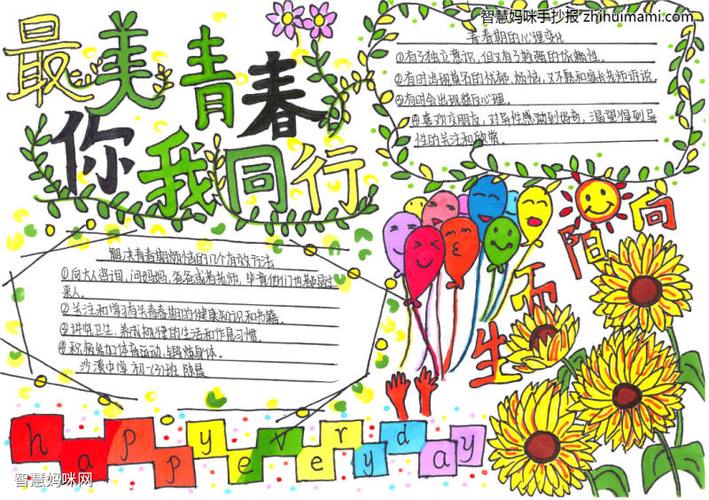 智慧妈咪手抄报 zhihuimami.com
最美青春
你我同行
青春期的心理变化
①有了独立意识，但又有了较强的依赖性。
②有时出现莫名的忧郁、烦恼，又不愿和家长老师诉说。
③有时会出现叛反心理。
④喜欢交朋友，对异性感到好奇，渴望得到异
性的关注和欣赏。
向
阳
而
生
解决青春期烦恼的几个有效方法
①向大人咨询，问妈妈、爸爸或者老师，毕竟他们也都是过
来人。
②关注和学习有关青春期的健康知识和书籍。
③讲究卫生、养成规律的生活和作息习惯。
④积极参加体育运动，锻炼身体。
沙溪中学 初一(3)班 陈晨
happy everyday
智慧妈咪网